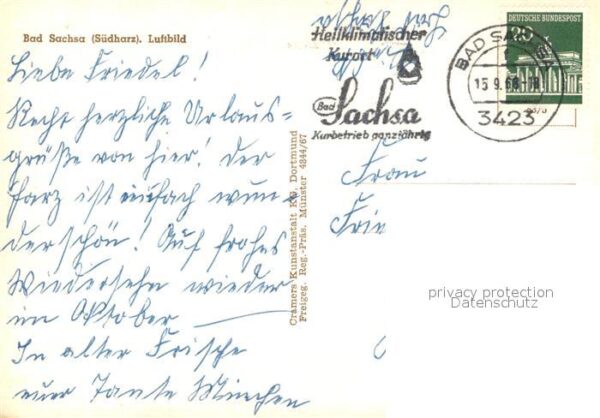 Bad Sachsa (Südharz). Luftbild
Liebe Friedel!
Recht herzliche Urlaus-
grüße von hier! Der
Harz ist einfach wun
derschön! Auf frohes
Wiedersehn wieder
im Oktober
In alter Frische
eure Tante Minchen
Cramers Kunstanstalt KG, Dortmund
Freigeg. Reg.-Präs. Münster 4844/67
Heilklimatischer
Kurort
Bad
Sachsa
Kurbetrieb ganzjährig
BAD SACHSA
15.9.68-18
3423
DEUTSCHE BUNDESPOST
20
Frau
Frie
privacy protection
Datenschutz